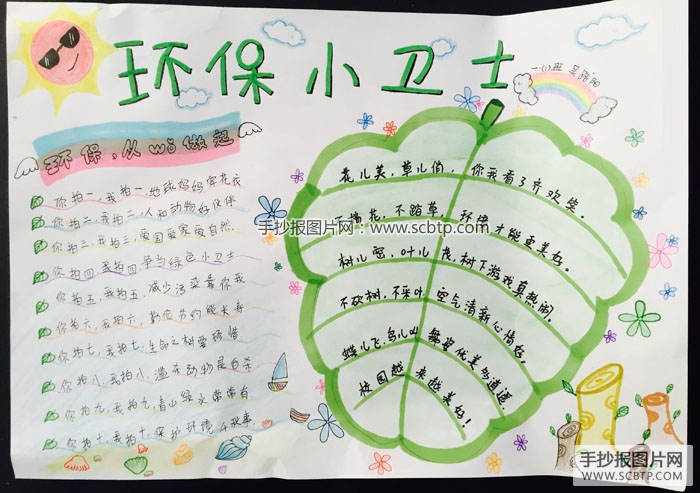 环保小卫士
一(1)班
环保,从wǒ做起
你拍一,我拍一,地球妈妈穿花衣
你拍二,我拍二,人和动物好伙伴
你拍三,我拍三,爱国爱家爱自然
你拍四,我拍四,争当绿色小卫士
你拍五,我拍五,减少污染靠你我
你拍六,我拍六,勤俭节约能长寿
你拍七,我拍七,生命之树要珍惜
你拍八,我拍八,滥杀动物是自杀
你拍九,我拍九,青山绿水常常有
你拍十,我拍十,保护环境
花儿美,草儿俏,你我看了齐欢笑。
不摘花,不踏草,环境才能更美好。
树儿密,叶儿茂,树下游戏真热闹。
不砍树,不采叶,空气清新心情好。
蝶儿飞,鸟儿叫,舞姿优美
校园越来越美好!
手抄报图片网:www.scbtp.com
手抄报图片网
WWW.SCBTP.COM